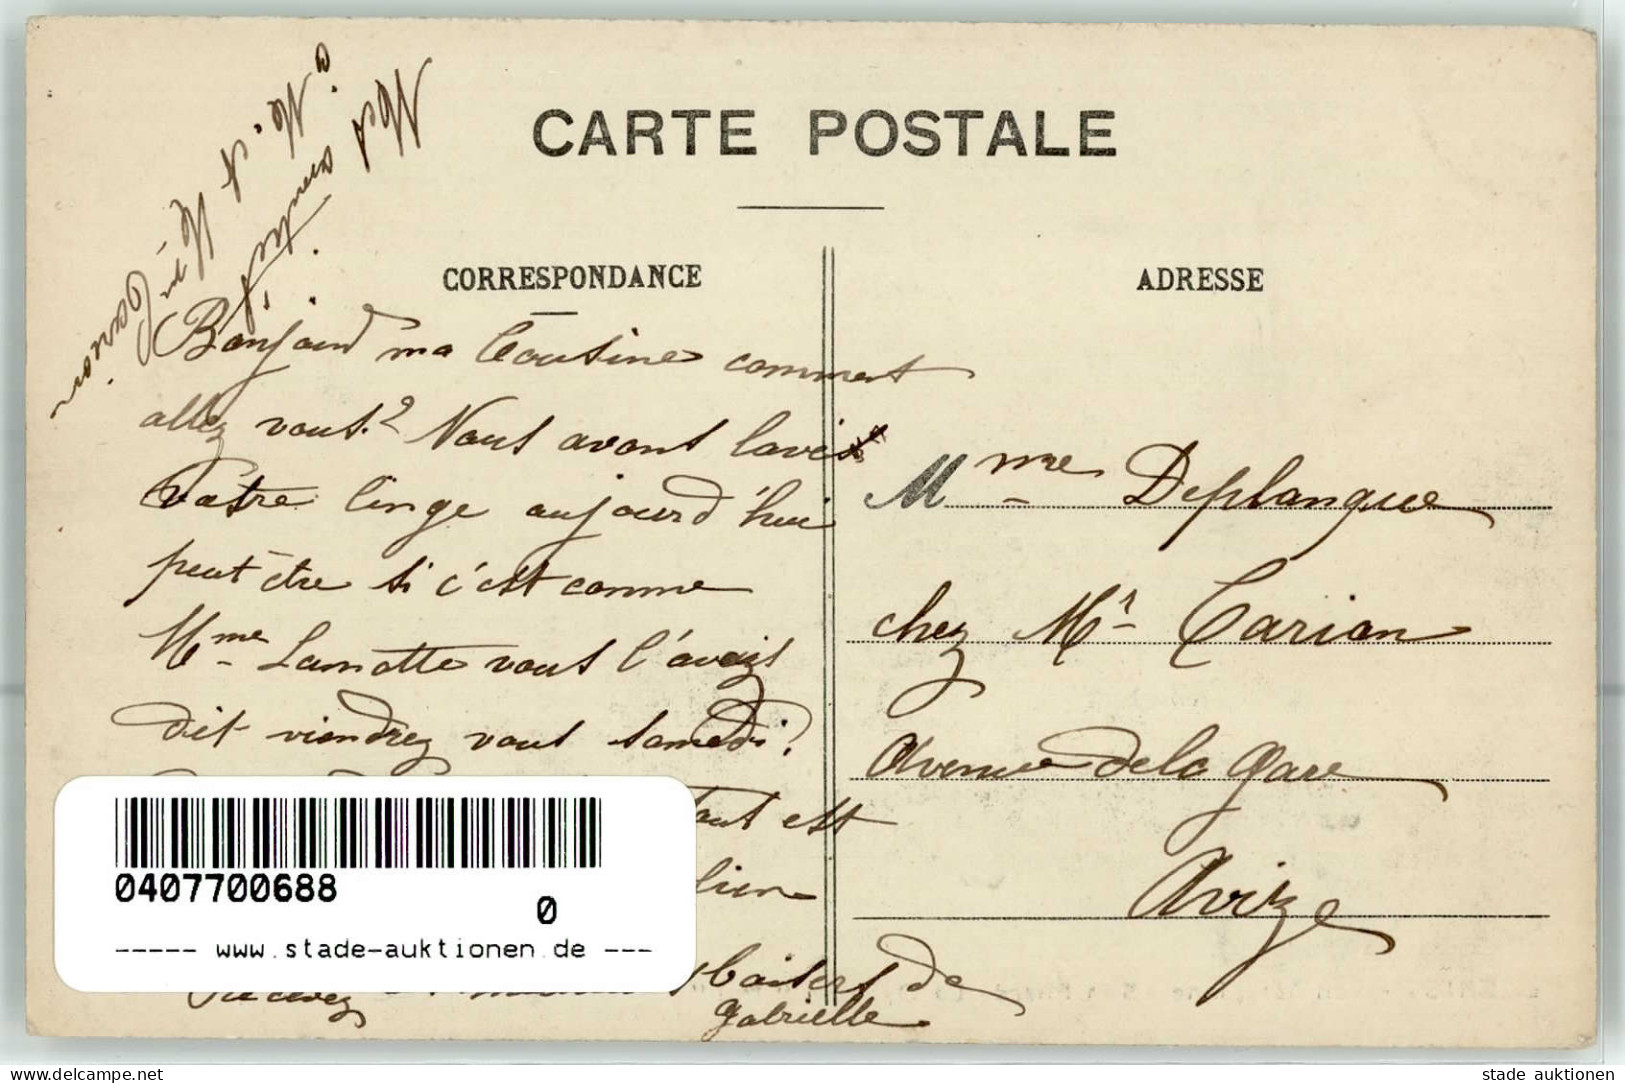 CARTE POSTALE
CORRESPONDANCE
Bonjour ma Cousine comment
allez vous? Nous avont lavés
Vatre linge aujourd'hui
peut être si c'est comme
Mme Lamotte vous l'aveizs
dit viendrez vous samedi?
tout est
bien
Recevez baisers de
Gabrielle
ADRESSE
Mme Deplanque
chez Mr Carion
Avenue de la gare
Avize
0407700688
0
----- www.stade-auktionen.de ---
www.delcampe.net
stade auktionen